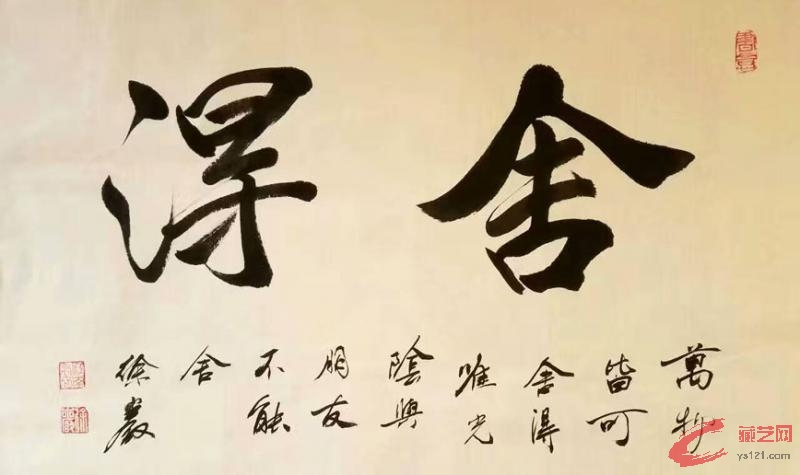 舍得
萬物
皆可
舍得
唯光
陰與
朋友
不能
舍
徐嚴
藏艺网
ys121.com